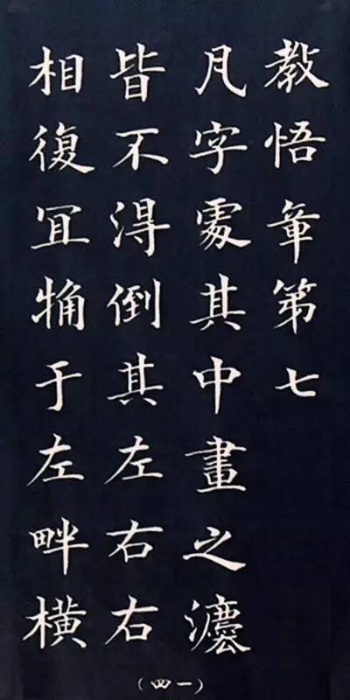 教悟章第七
凡字處其中畫之灋
皆不淂倒其左右右
相復冝觕于左畔橫
（四一）